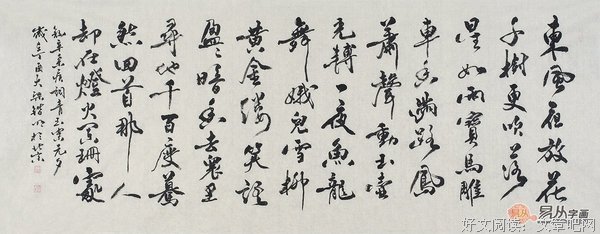 東風夜放花
千樹更吹落
星如雨寶馬雕
車香滿路鳳
簫聲動玉壺
光轉一夜魚龍
舞蛾兒雪柳
黃金縷笑語
盈盈暗香去衆里
尋他千百度驀
然回首那人
却在燈火闌珊處
辛棄疾詞青玉案元夕
易从字画
好文阅读：文章吧网